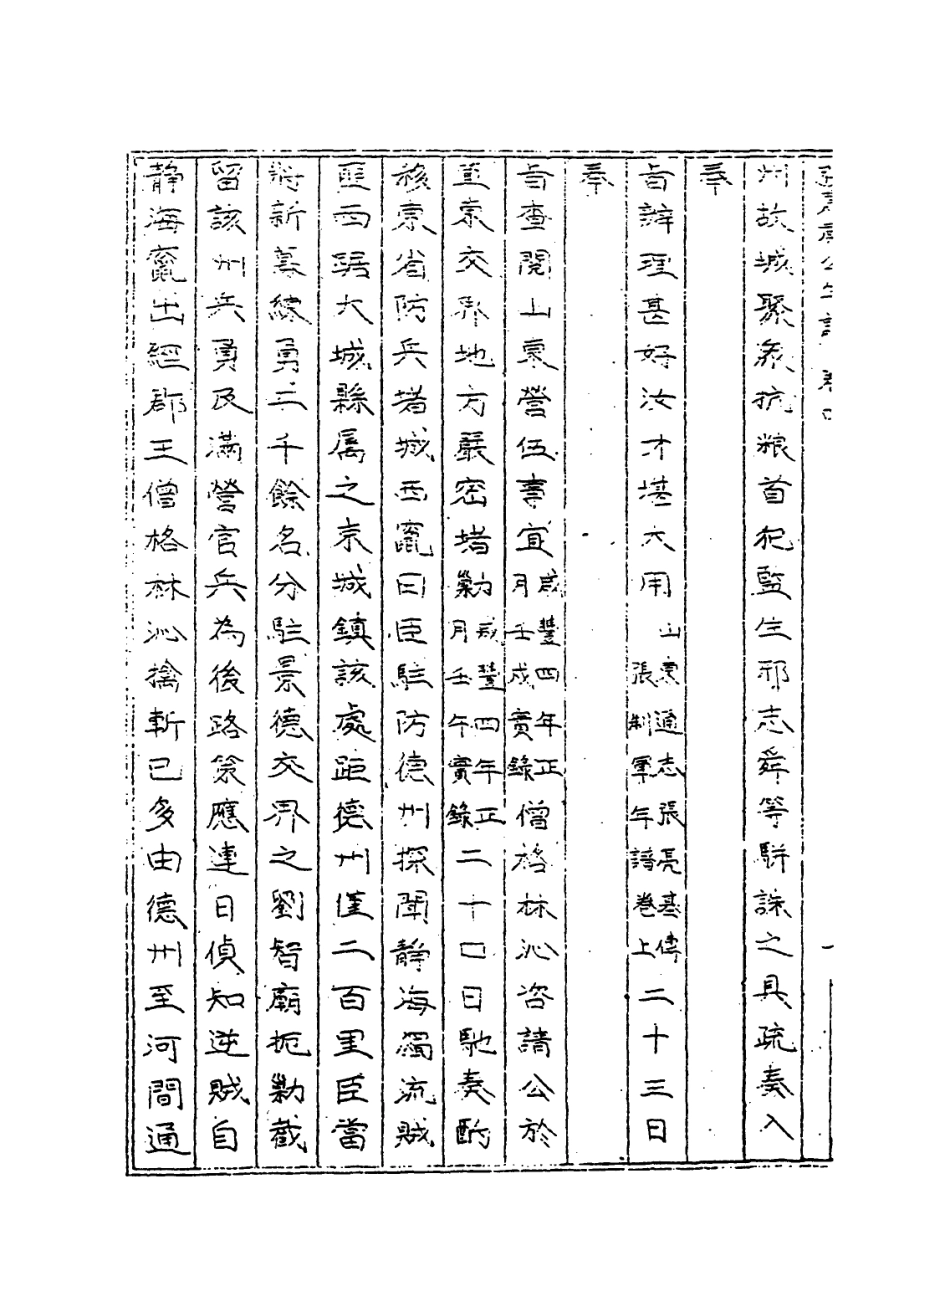 公年譜
州故城聚衆抗粮首犯監生邪志舜等駢誅之具疏奏入
奉
旨辦理甚好汝才堪大用山東通志張亮基傳張制軍年譜卷上二十三日
奉
旨查閱山東營伍事宜咸豐四年正月壬戌實錄僧格林沁咨請公於
直東交界地方嚴密堵勦咸豐四年正月壬午實錄二十口日馳奏酌
移東省防兵堵城西竄曰臣駐防德州探聞靜海獨流賊
匪西踞大城縣屬之京城鎮該處距德州僅二百里臣當
將新募練勇三千餘名分駐景德交界之劉智廟扼勦截
留該州兵勇及滿營官兵為後路策應連日偵知逆賊自
靜海竄出經郡王僧格林沁擒斬已多由德州至河間通